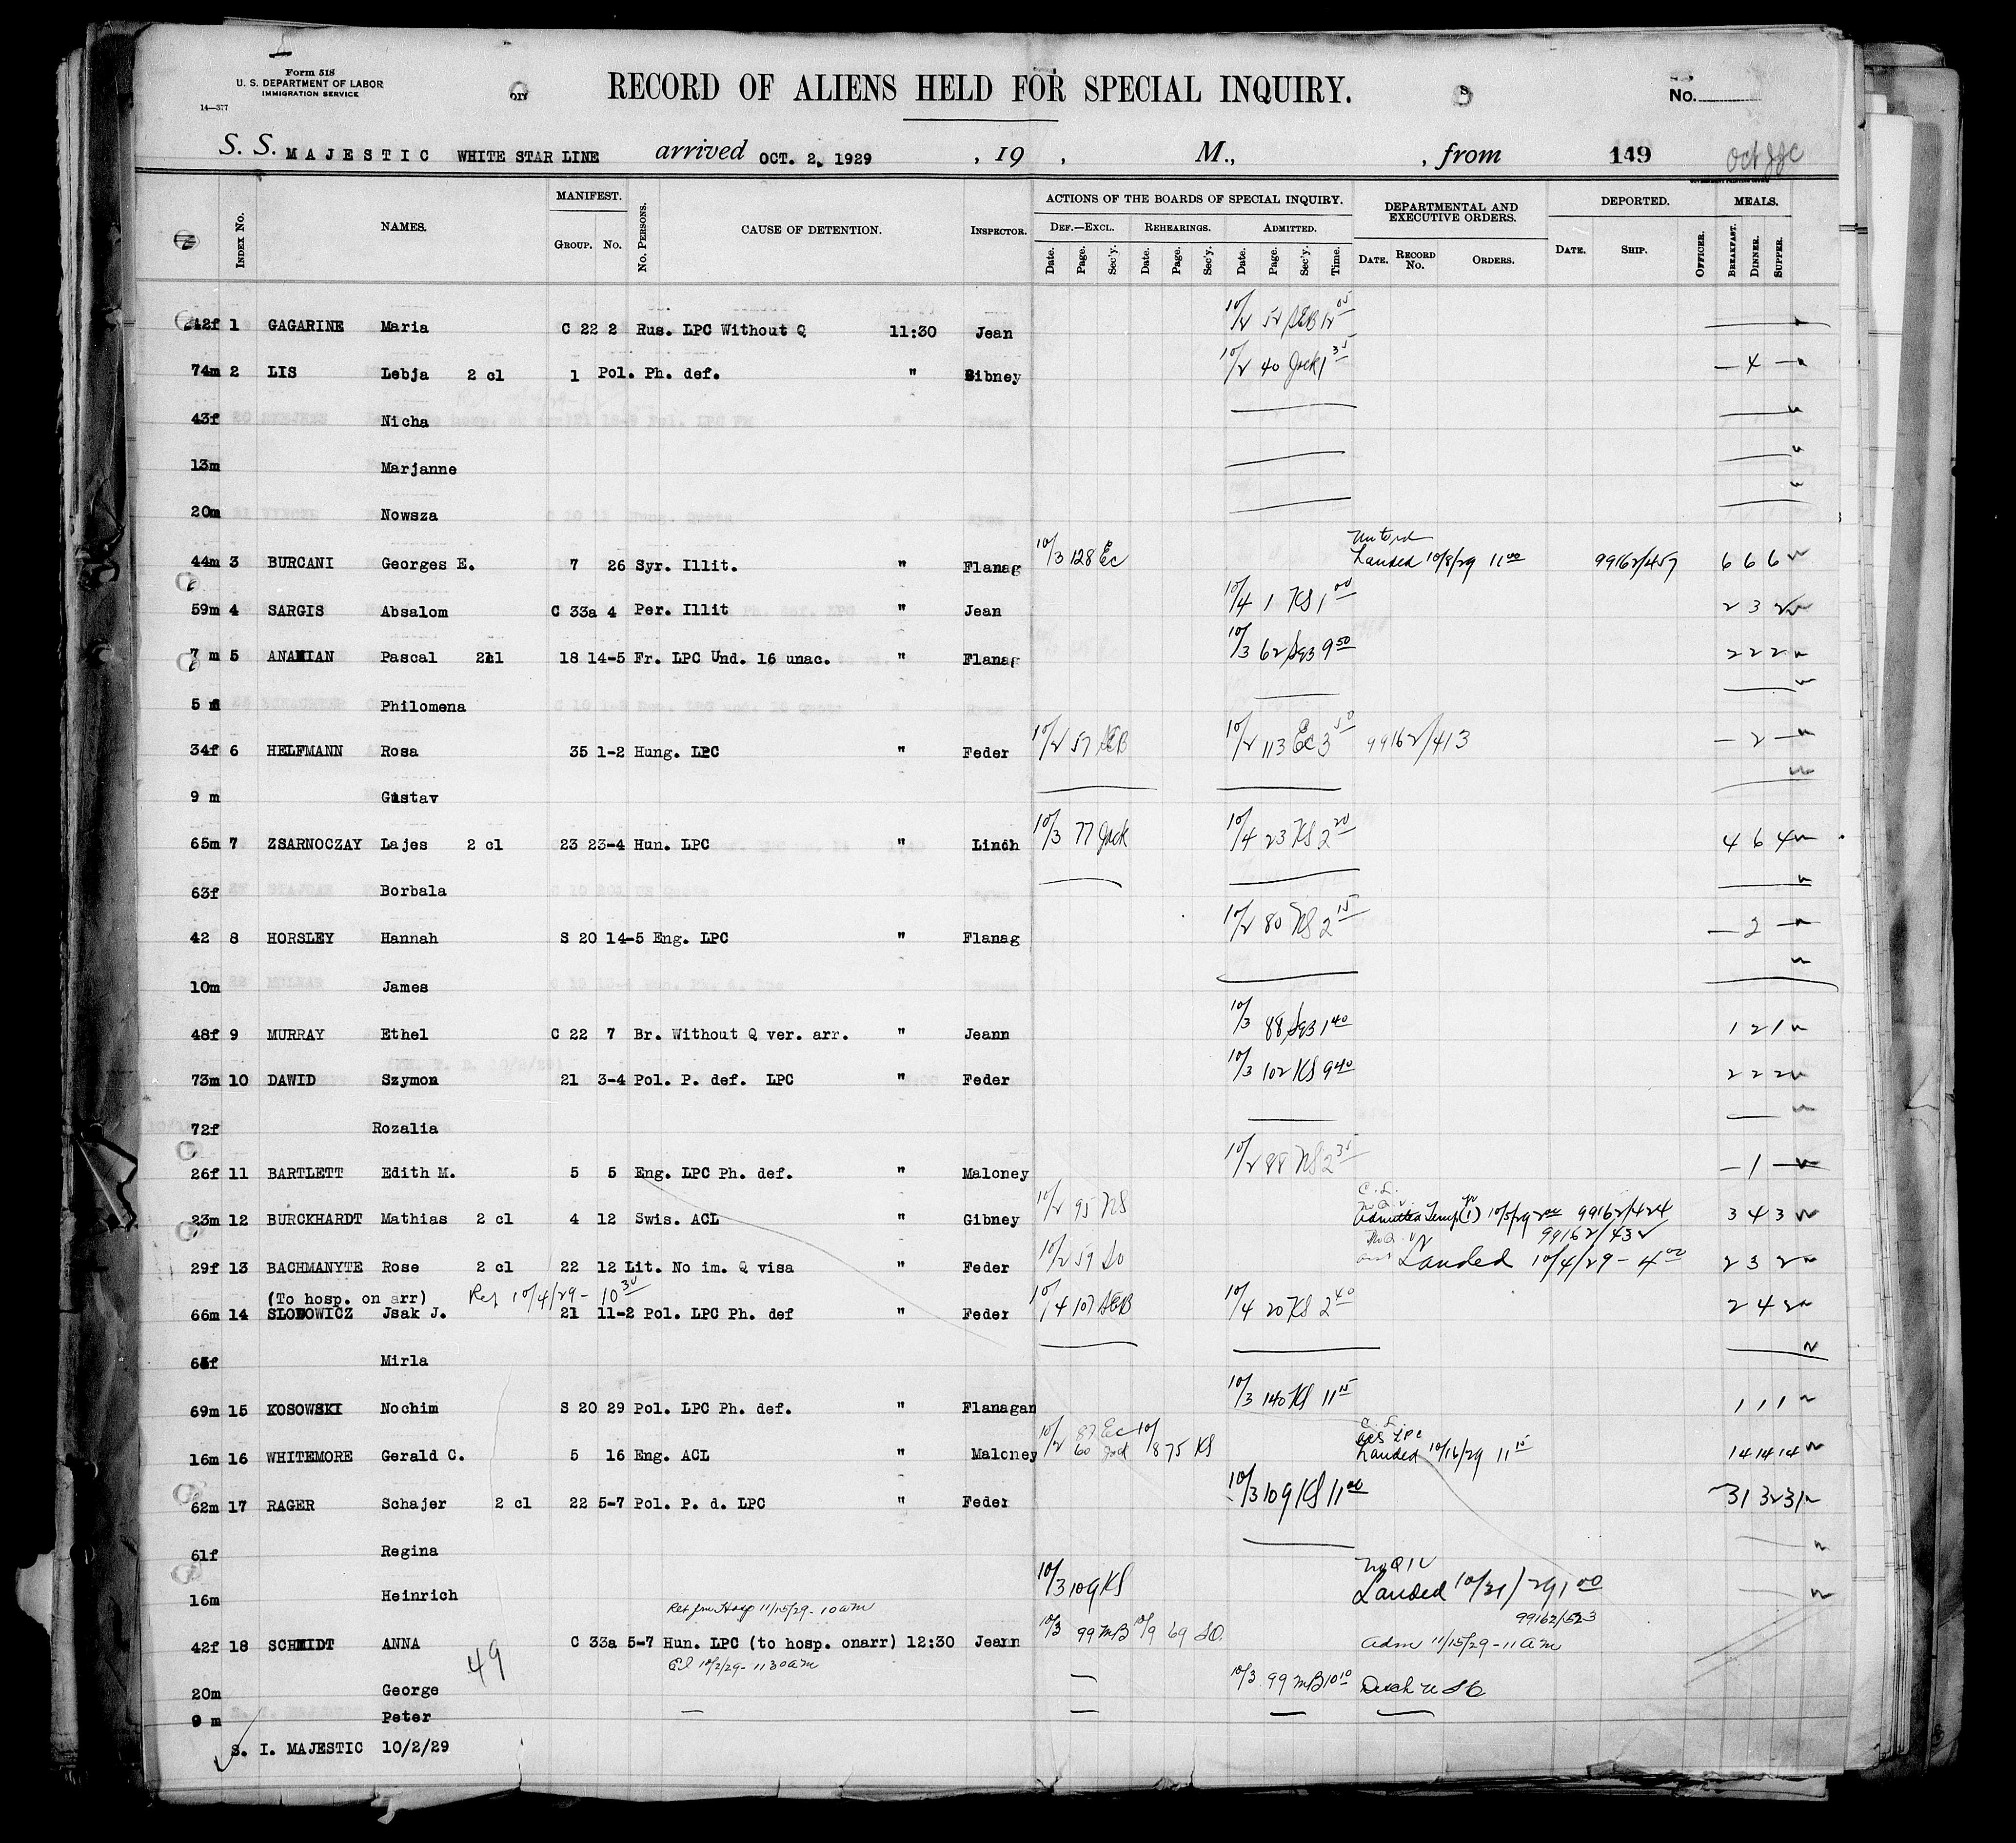 Form 518
U. S. DEPARTMENT OF LABOR
IMMIGRATION SERVICE
14—377
RECORD OF ALIENS HELD FOR SPECIAL INQUIRY.
No.
S. S. MAJESTIC WHITE STAR LINE arrived OCT. 2, 1929 , 19 , M., , from 149
INDEX No. NAMES. MANIFEST. GROUP. No. No. PERSONS. CAUSE OF DETENTION. INSPECTOR. ACTIONS OF THE BOARDS OF SPECIAL INQUIRY. DEPARTMENTAL AND EXECUTIVE ORDERS. DEPORTED. MEALS.
DEF.—EXCL. REHEARINGS. ADMITTED.
Date. Page. Sec'y. Date. Page. Sec'y. Date. Page. Sec'y. Time. DATE. RECORD No. ORDERS. DATE. SHIP. OFFICER. BREAKFAST. DINNER. SUPPER.
42f 1 GAGARINE Maria C 22 2 Rus. LPC Without Q 11:30 Jean 10/2 52 SEB 12 05
74m 2 LIS Lebja 2 cl 1 Pol. Ph. def. " Gibney 10/2 40 Jock 1 35 — 4 —
43f Nicha
13m Marjanne
20m Nowsza
44m 3 BURCANI Georges E. 7 26 Syr. Illit. " Flanag 10/3 128 Ec Landed 10/8/29 11 00 99162/459 6 6 6
59m 4 SARGIS Absalom C 33a 4 Per. Illit " Jean 10/4 1 KS 1 00 2 3 2
7 m 5 ANAMIAN Pascal 2cl 18 14-5 Fr. LPC Und. 16 unac. " Flanag 10/3 62 9 50 2 2 2
5 f Philomena
34f 6 HELFMANN Rosa 35 1-2 Hung. LPC " Feder 10/2 57 SEB 10/2 113 Ec 3 50 99162/413 — 2 —
9 m Gustav
65m 7 ZSARNOCZAY Lajes 2 cl 23 23-4 Hun. LPC " Linch 10/3 77 Jock 10/4 23 KS 2 20 4 6 4
63f Borbala
42 8 HORSLEY Hannah S 20 14-5 Eng. LPC " Flanag 10/2 80 NS 2 15 — 2 —
10m James
48f 9 MURRAY Ethel C 22 7 Br. Without Q ver. arr. " Jeann 10/3 88 1 40 1 2 1
73m 10 DAWID Szymon 21 3-4 Pol. P. def. LPC " Feder 10/3 102 KS 9 40 2 2 2
72f Rozalia
26f 11 BARTLETT Edith M. 5 5 Eng. LPC Ph. def. " Maloney 10/2 88 NS 2 35 — 1 —
23m 12 BURCKHARDT Mathias 2 cl 4 12 Swis. ACL " Gibney 10/2 95 NS Admitted Temp (1) 10/5/29 2 00 99162/424 3 4 3
99162/432
29f 13 BACHMANYTE Rose 2 cl 22 12 Lit. No im. Q visa " Feder 10/2 59 SO Landed 10/4/29 - 4 00 2 3 2
(To hosp. on arr) Ret 10/4/29 - 10 30
66m 14 SLODOWICZ Jsak J. 21 11-2 Pol. LPC Ph. def " Feder 10/4 107 SEB 10/4 20 KS 2 40 2 4 2
65f Mirla
69m 15 KOSOWSKI Nochim S 20 29 Pol. LPC Ph. def. " Flanagan 10/3 140 KS 11 15 1 1 1
16m 16 WHITEMORE Gerald C. 5 16 Eng. ACL " Maloney 10/2 87 Ec 60 Jock 10/8 75 KS Landed 10/16/29 11 15 14 14 14
62m 17 RAGER Schajer 2 cl 22 5-7 Pol. P. d. LPC " Feder 10/3 109 KS 11 00 31 32 31
61f Regina
16m Heinrich 10/3 109 KS Landed 10/31/29 1 00
Ret fm Hosp 11/15/29 - 10 am 99162/523
42f 18 SCHMIDT ANNA C 33a 5-7 Hun. LPC (to hosp. onarr) 12:30 Jeann 10/3 99 MB 10/9 69 SO. Adm 11/15/29 - 11 am
49 10/2/29 - 11 30 am
20m George 10/3 99 MB 10 10
9 m Peter
S. I. MAJESTIC 10/2/29